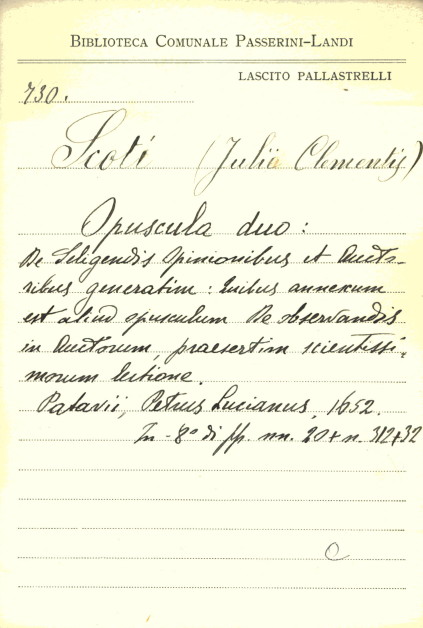 BIBLIOTECA COMUNALE PASSERINI-LANDI
LASCITO PALLASTRELLI
730.
Scoti (Julii Clementis)
Opuscula duo:
De Seligendis Opinionibus et Aucto-
ribus generatim: Quibus annexum
est aliud opusculum De observandis
in Auctorum, praesertim scientissi-
morum lectione.
Patavii, Petrus Lucianus, 1652.
In-8° di pp. nn. 20+n. 312+32
C